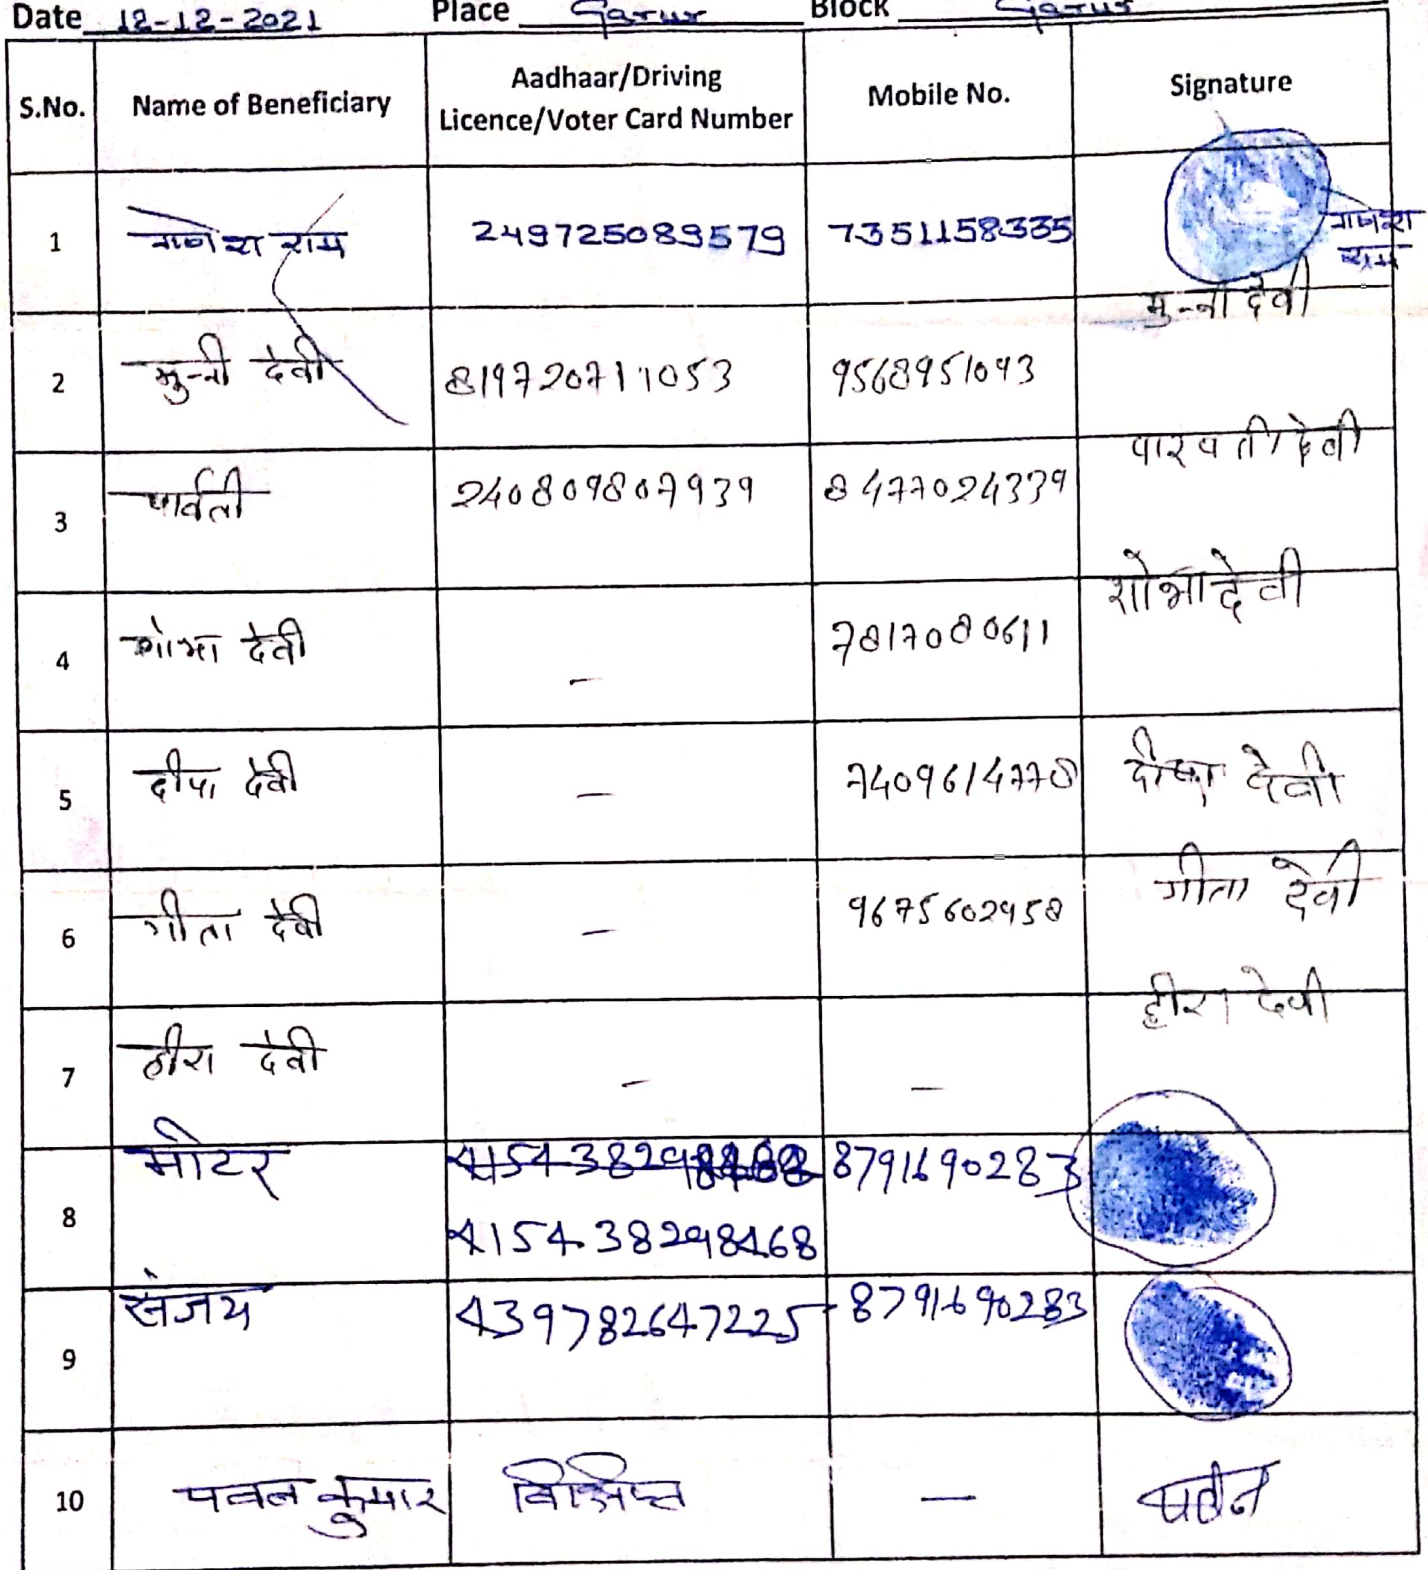 Date 12-12-2021 Place Garur Block Garur
S.No. Name of Beneficiary Aadhaar/Driving Licence/Voter Card Number Mobile No. Signature
1 गणेश राम 249725089579 7351158335 गणेश राम
2 मुन्नी देवी 819720711053 9568951093 मुन्नी देवी
3 पार्वती 240809807939 8477024339 पारवती देवी
4 शोभा देवी - 7817080611 शोभा देवी
5 दीपा देवी - 7409614778 दीपा देवी
6 गीता देवी - 9675602958 गीता देवी
7 हीरा देवी - - हीरा देवी
8 मोटर 8791690283
415438298468
9 संजय 439782647225 8791690283
10 पवन कुमार विक्षिप्त - पवन